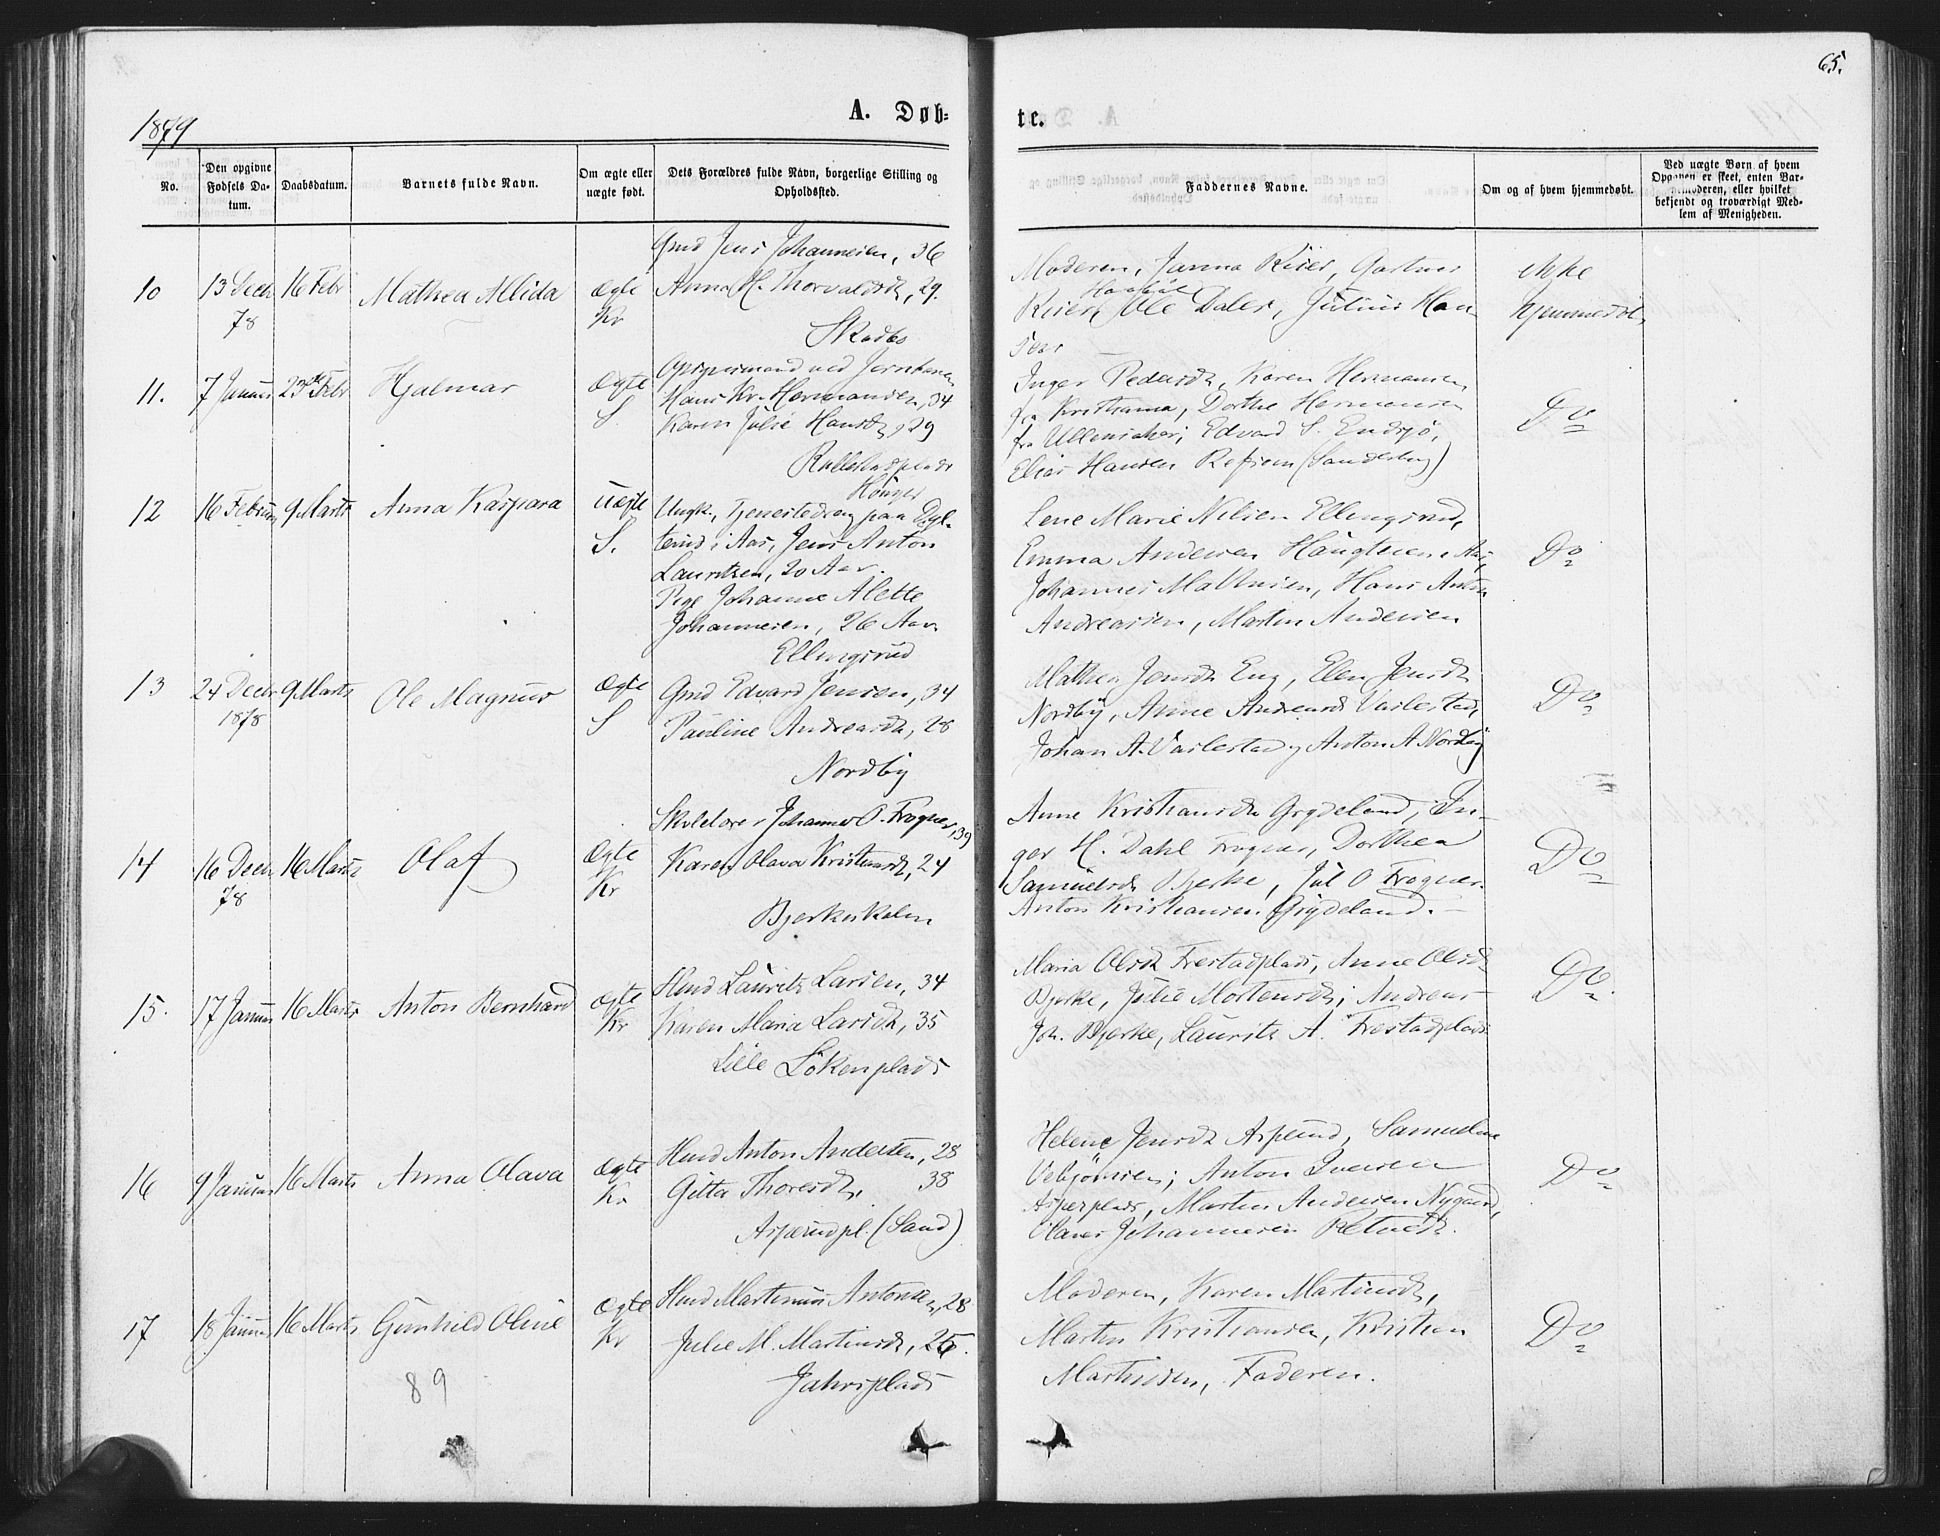 65.
1879
A. Døb-
te.
No.
Den opgivne Fødsels Da-
tum.
Daabsdatum.
Barnets fulde Navn.
Om ægte eller
uægte født.
Dets Forældres fulde Navn, borgerlige Stilling og
Opholdssted.
Faddernes Navne.
Om og af hvem hjemmedøbt.
Ved uægte Børn af hvem
Opgaven er skeet, enten Bar-
nemoderen, eller hvilket
bekjendt og troværdigt Med-
lem af Menigheden.
Gmd Jens Johannesen, 36
10 13 Decb 16 Febr Mathea Allida ægte Anna H. Thorvaldsd, 29.
78 Kr
Moderen,
Ole Dales, Julius Han
sen
ikke
hjemmedøbt
11. 7 Januar 23de Febr Hjalmar ægte
S.
ved Jernbanen
Hans Kr. Hermansen, 34
Karen Julie Hansd, 29
Inger Pedersd, Karen Hermansen
fra Kristiania, Dorthe Hermansen
fra Ullensaker, Edvard S. Endsjø,
Elias Hansen
Do
12 16 Februar 9 Marts Anna Kaspara uægte
S.
Ungk. Tjenestedreng paa
i Aas, Jens Anton
Lauritzen, 20 Aar.
Pige Johanne Alette
Johannesen, 26 Aar
Ellingsrud
Lene Marie Nilsen Ellingsrud,
Emma Andersen
Johannes Mathisen, Hans Anton
Andreassen, Martin Andersen
Do
13 24 Decbr 9 Marts Ole Magnus ægte
1878 S
Gmd Edvard Jensen, 34
Pauline Andreasd, 28
Nordby
Mathea Jensd Eng, Elen Jensd
Nordby, Anne Andreasd Varlestad,
Johan A. Varlestad, Anton A. Nordby
Do
14 16 Decb 16 Marts Olaf ægte
78 Kr
Skolelærer Johannes O. Frogner, 39
Karen Olava Kristiansd, 24
Bjerkeskolen
Anne Kristiansd Grydeland, In-
ger H. Dahl Frogner, Dorthea
Samuelsd Bjerke, Jul O Frogner
Anton Kristiansen Grydeland.
Do
15. 17 Januar 16 Marts Anton Bernhard ægte
Kr
Hmd Lauritz Larsen, 34
Karen Maria Larsd, 35
Lille Løkenplads
Maria Olsd Frestadplads, Anne Olsd
Bjerke, Julie Mortensd, Andreas
Joh. Bjerke, Lauritz A. Frestadplads
Do.
16 9 Januar 16 Marts Anna Olava ægte
Kr.
Hmd Anton Andersen, 28
Gitta Thoresd, 38
Asperudpl. (Sand)
Helene Jensd Asperud, Samueline
Anton Iversen
Martin Andersen Nygaard,
Olaves Johannesen
Do
17 18 Januar 16 Marts Gunhild Oline ægte
Kr
Hmd Martinius Antonsen, 28
Julie M. Martinsd, 26.
Jahrsplads
89
Moderen, Karen Martinsd,
Martin Kristiansen, Kristian
Martinsen, Faderen.
Do